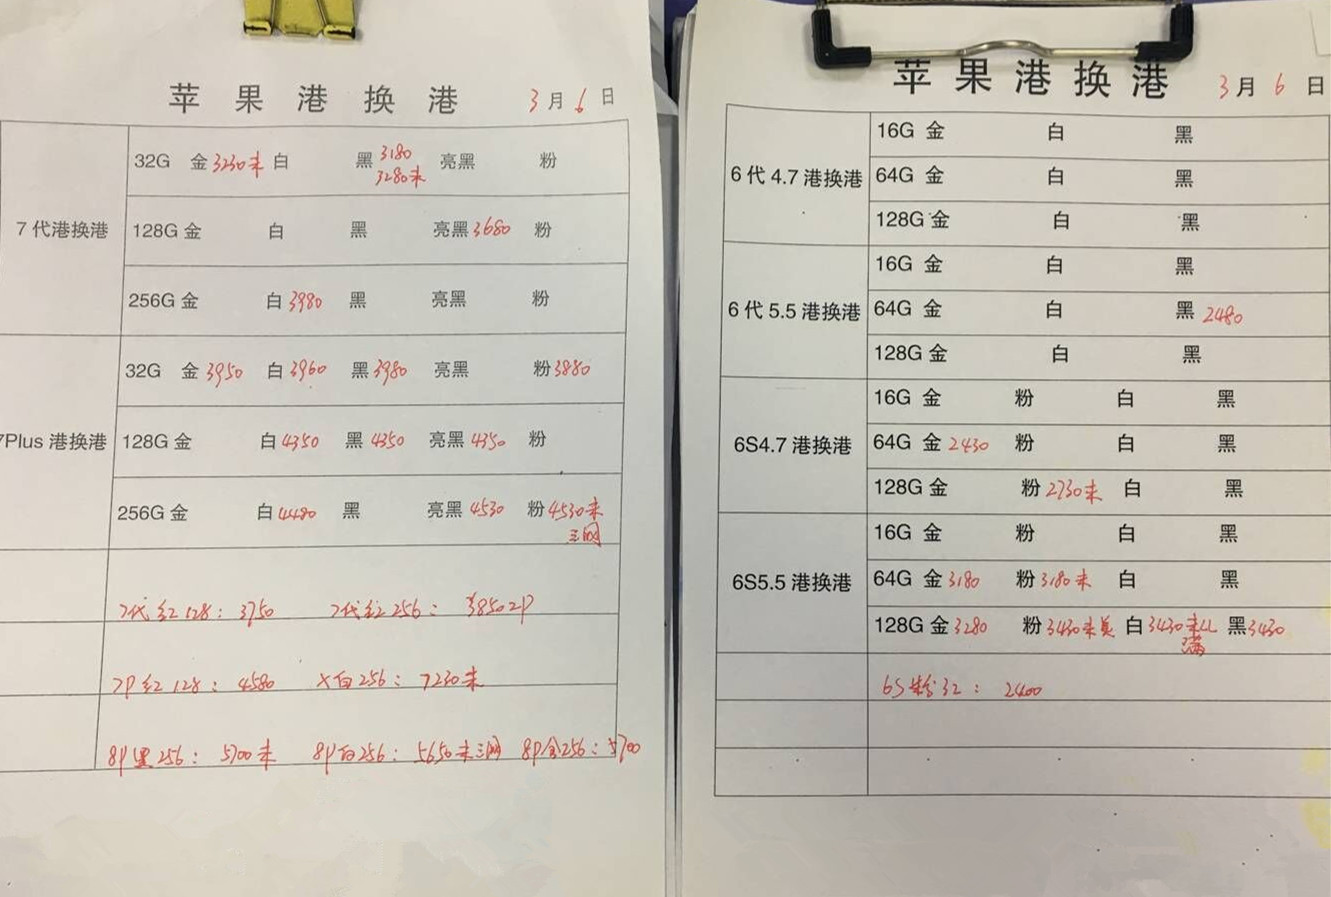 苹果港换港 3月6日
7代港换港
32G 金3230未 白 黑3180 亮黑 粉
3280未
128G 金 白 黑 亮黑3680 粉
256G 金 白3980 黑 亮黑 粉
7Plus 港换港
32G 金3950 白3960 黑3980 亮黑 粉3880
128G 金 白4350 黑4350 亮黑4350 粉
256G 金 白4480 黑 亮黑4530 粉4530未
三网
7代红128：3750 7代红256：3850
7P红128：4580 X白256：7230未
8P黑256：5700未 8P白256：5650未三网 8P金256：5700
苹果港换港 3月6日
6代4.7港换港
16G 金 白 黑
64G 金 白 黑
128G 金 白 黑
6代5.5港换港
16G 金 白 黑
64G 金 白 黑2480
128G 金 白 黑
6S4.7港换港
16G 金 粉 白 黑
64G 金2430 粉 白 黑
128G 金 粉2730未 白 黑
6S5.5港换港
16G 金 粉 白 黑
64G 金3180 粉3180未 白 黑
128G 金3280 粉3430未美 白3430未LL 黑3430
满
6S粉32：2400